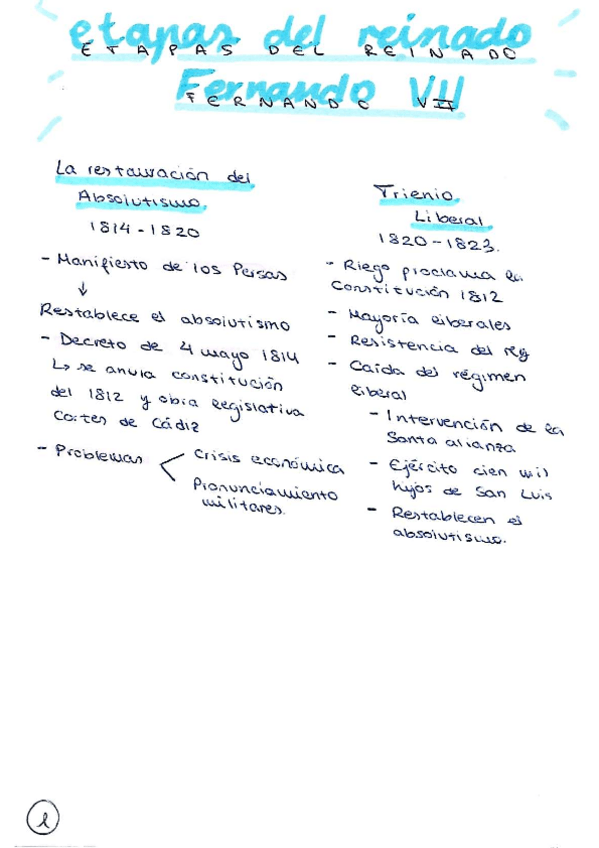 etapas del reinado
ETAPAS DEL REINADO
Fernando VII
FERNANDO VII
La restauración del
Absolutismo.
1814-1820
- Manifiesto de los Persas
↓
Restablece el absolutismo
- Decreto de 4 mayo 1814
↳ se anula constitución
del 1812 y obra legislativa
Cortes de Cádiz
- Problemas < Crisis económica
Pronunciamiento
militares.
Trienio
Liberal.
1820-1823.
- Riego proclama la
Constitución 1812
- Mayoría liberales
- Resistencia del rey
- Caída del régimen
liberal
- Intervención de la
Santa alianza
- Ejército cien mil
hijos de San Luis
- Restablecen el
absolutismo.
1